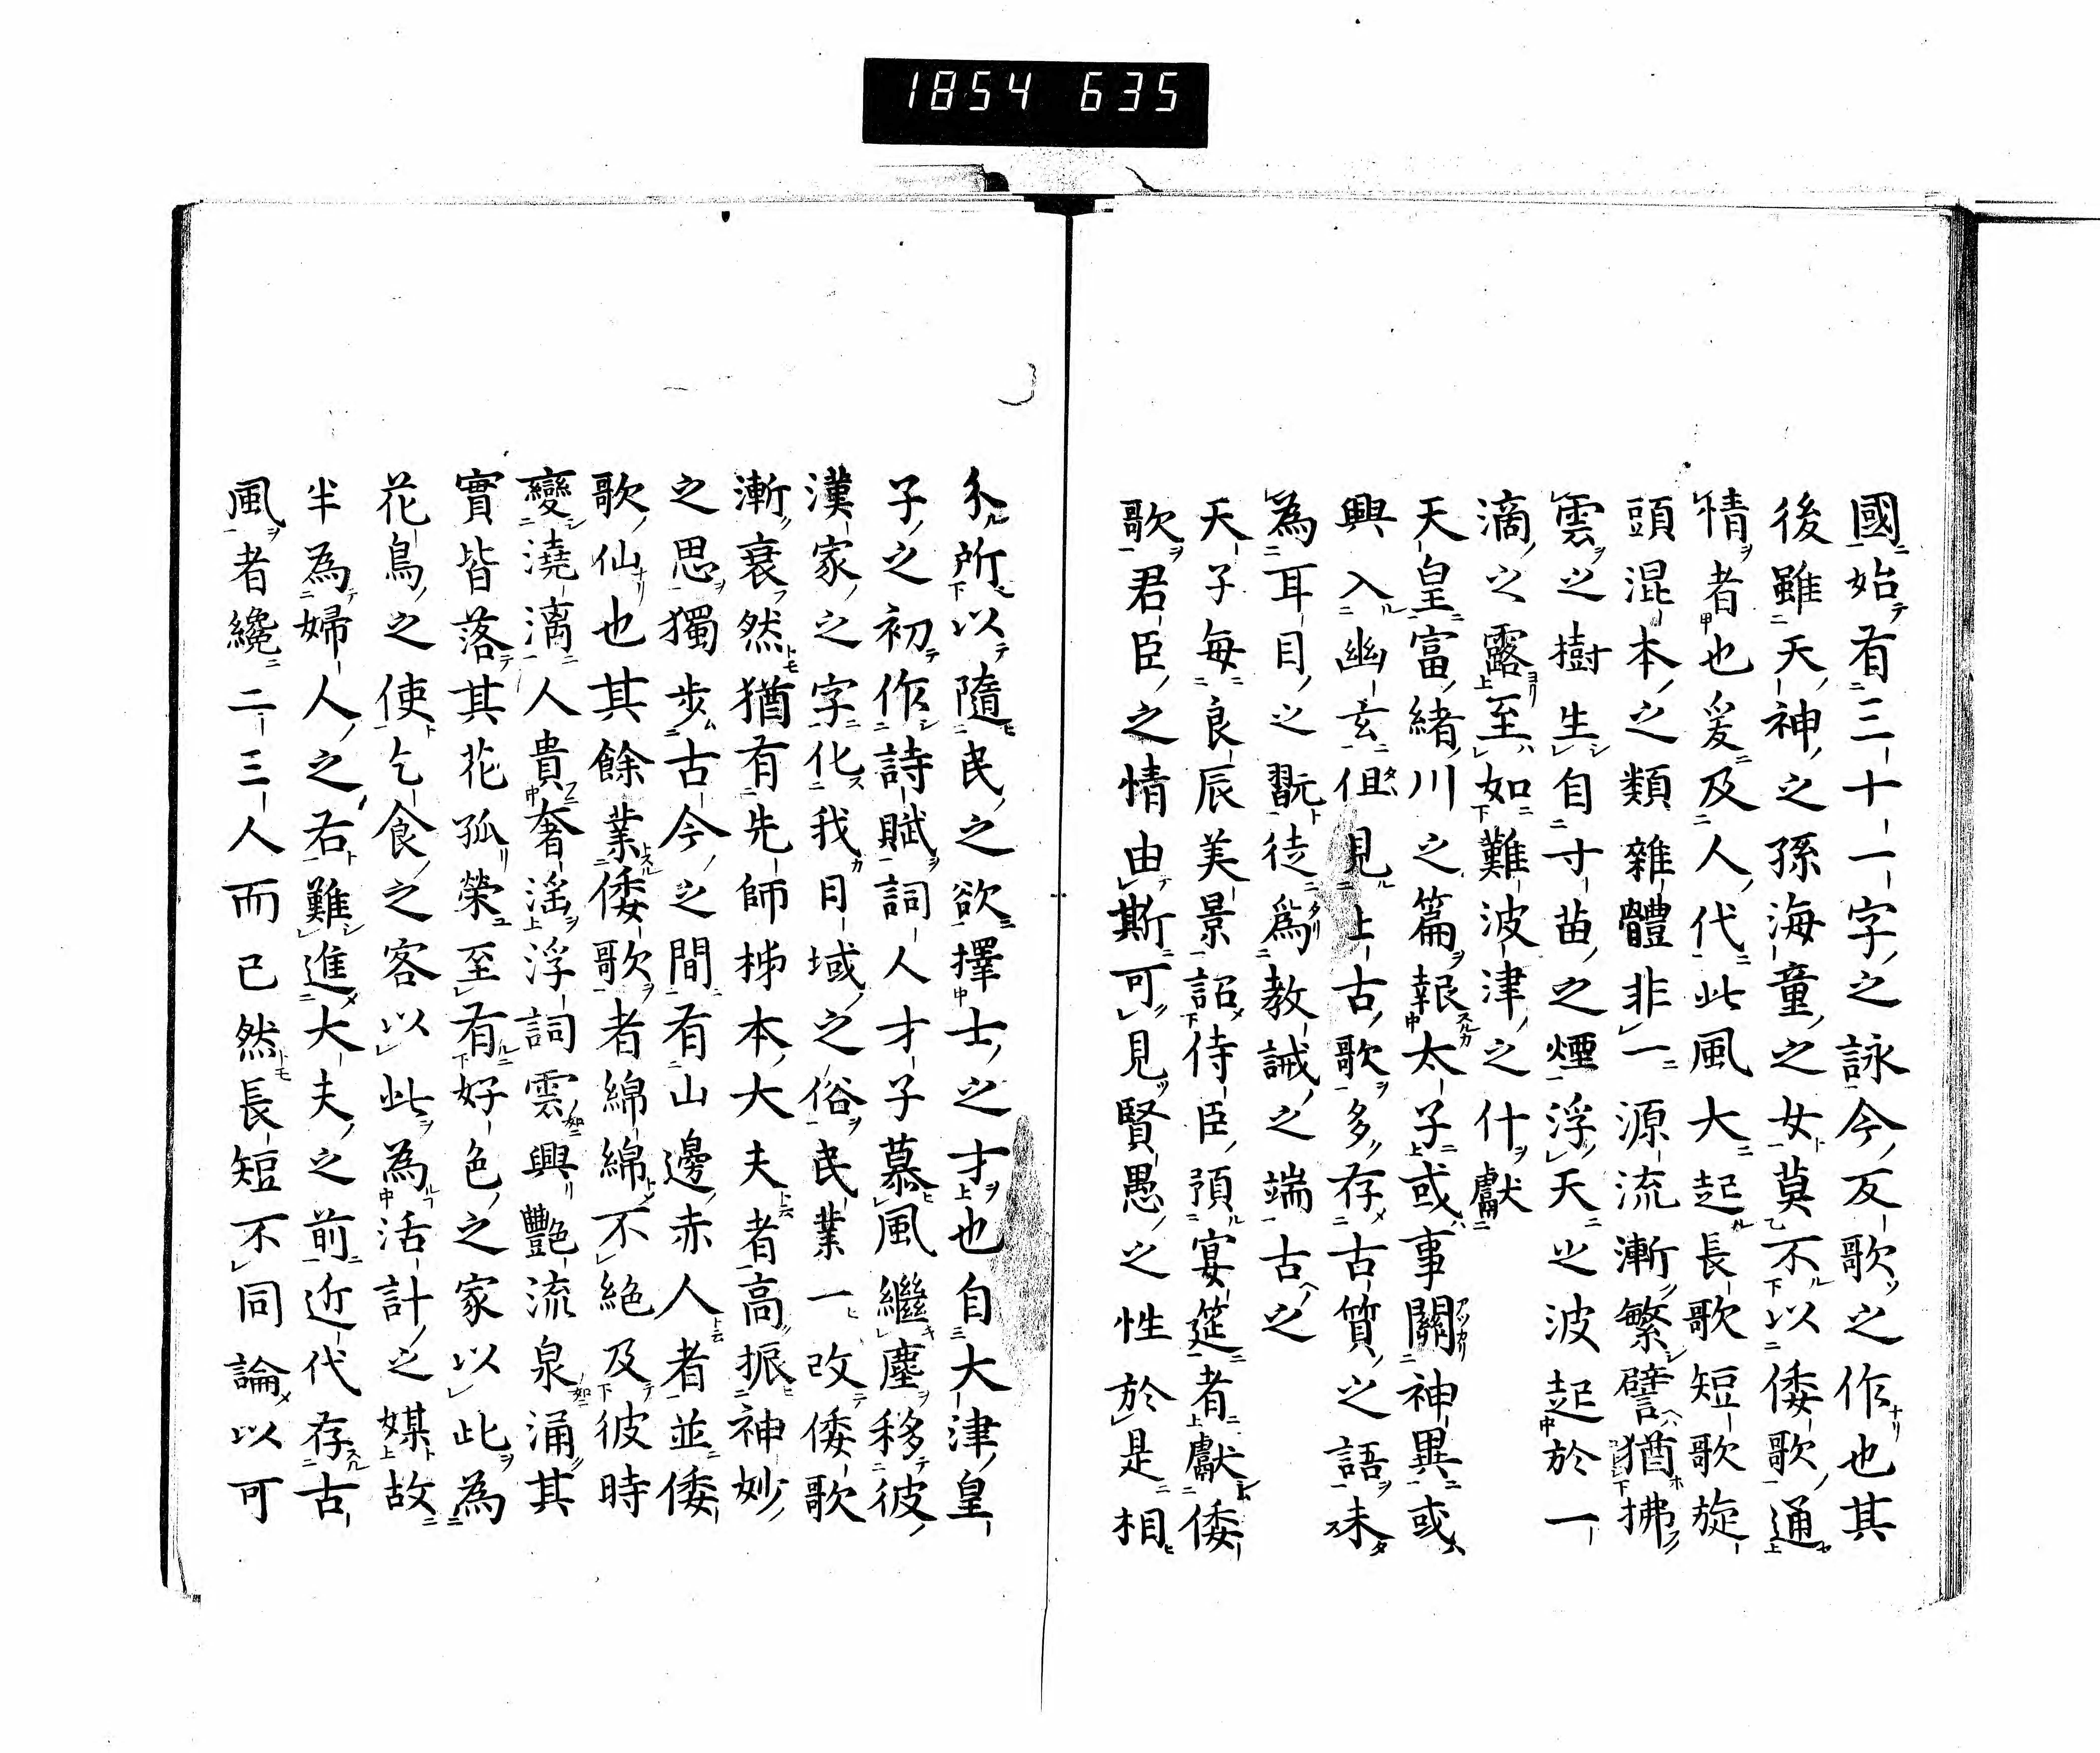 1854 635
國始有三十一字之詠今反歌之作也其
後雖天神之孫海童之女莫不以倭歌通
情者也爰及人代此風大起長歌短歌旋
頭混本之類雜體非一源流漸繁譬猶拂
雲之樹生自寸苗之煙浮天之波起於一
滴之露至如難波津之什獻
天皇富緒川之篇報太子或事關神異或
興入幽玄但見上古歌多存古質之語未
為耳目之翫徒爲教誡之端古之
天子每良辰美景詔侍臣預宴筵者獻倭
歌君臣之情由斯可見賢愚之性於是相
分所以隨民之欲擇士之才也自大津皇
子之初作詩賦詞人才子慕風繼塵移彼
漢家之字化我日域之俗民業一改倭歌
漸衰然猶有先師柿本大夫者高振神妙
之思獨步古今之間有山邊赤人者並倭
歌仙也其餘業倭歌者綿綿不絕及彼時
變澆漓人貴奢淫浮詞雲興艷流泉涌其
實皆落其花孤榮至有好色之家以此為
花鳥之使乞食之客以此為活計之媒故
半為婦人之右難進大夫之前近代存古
風者纔二三人而已然長短不同論以可